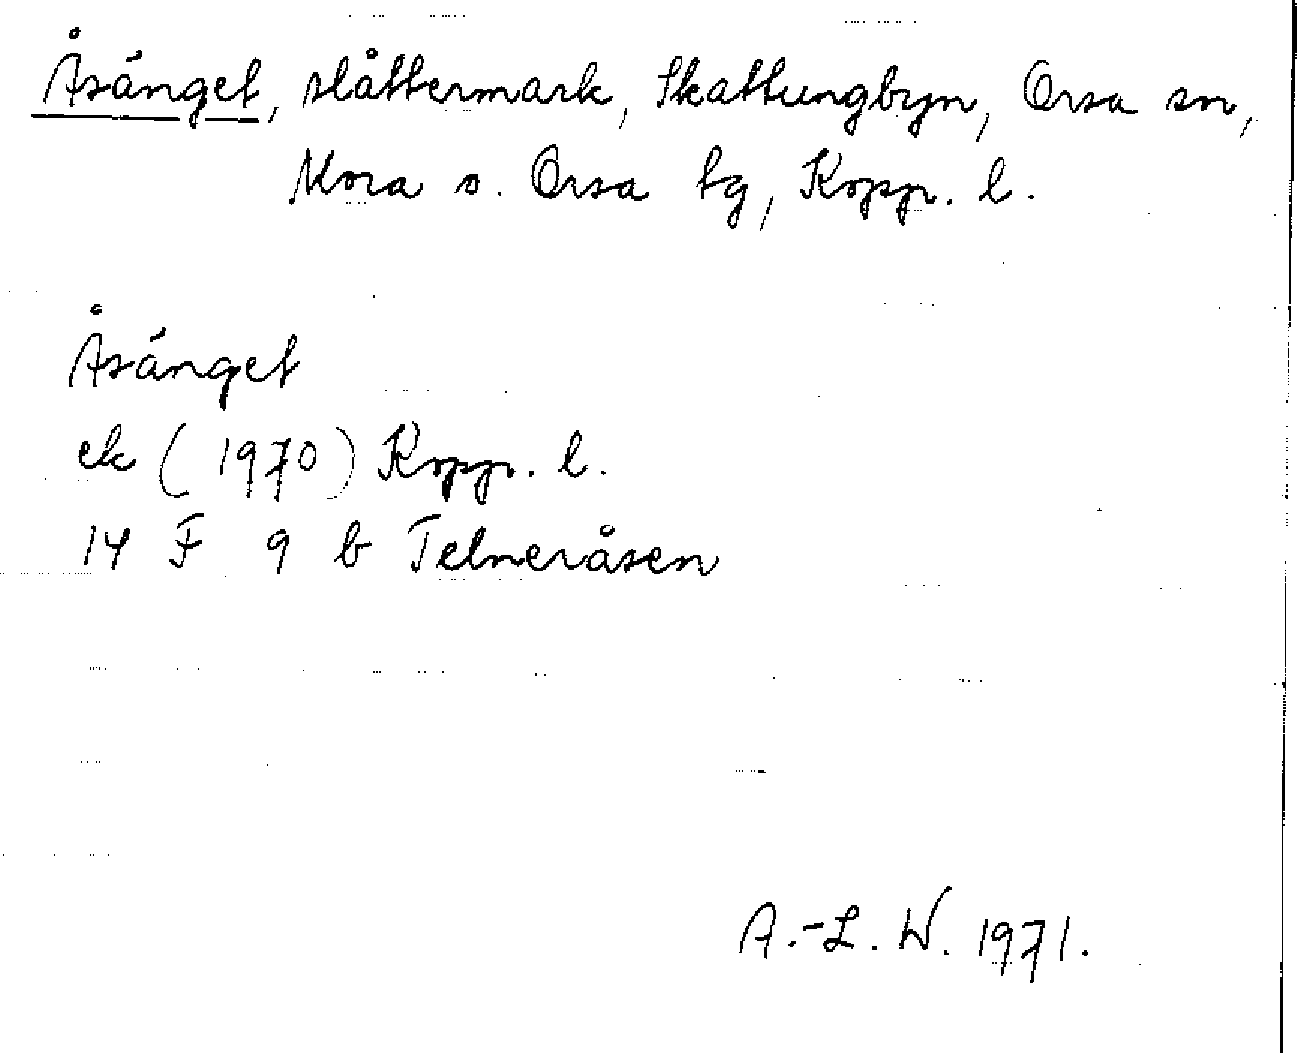 Åsänget, slåttermark, Skattungbyn, Orsa sn,
Mora o. Orsa tg, Kopp. l.
Åsänget
ek (1970) Kopp. l.
14 F 9 b Telneråsen
A.-L. W. 1971.